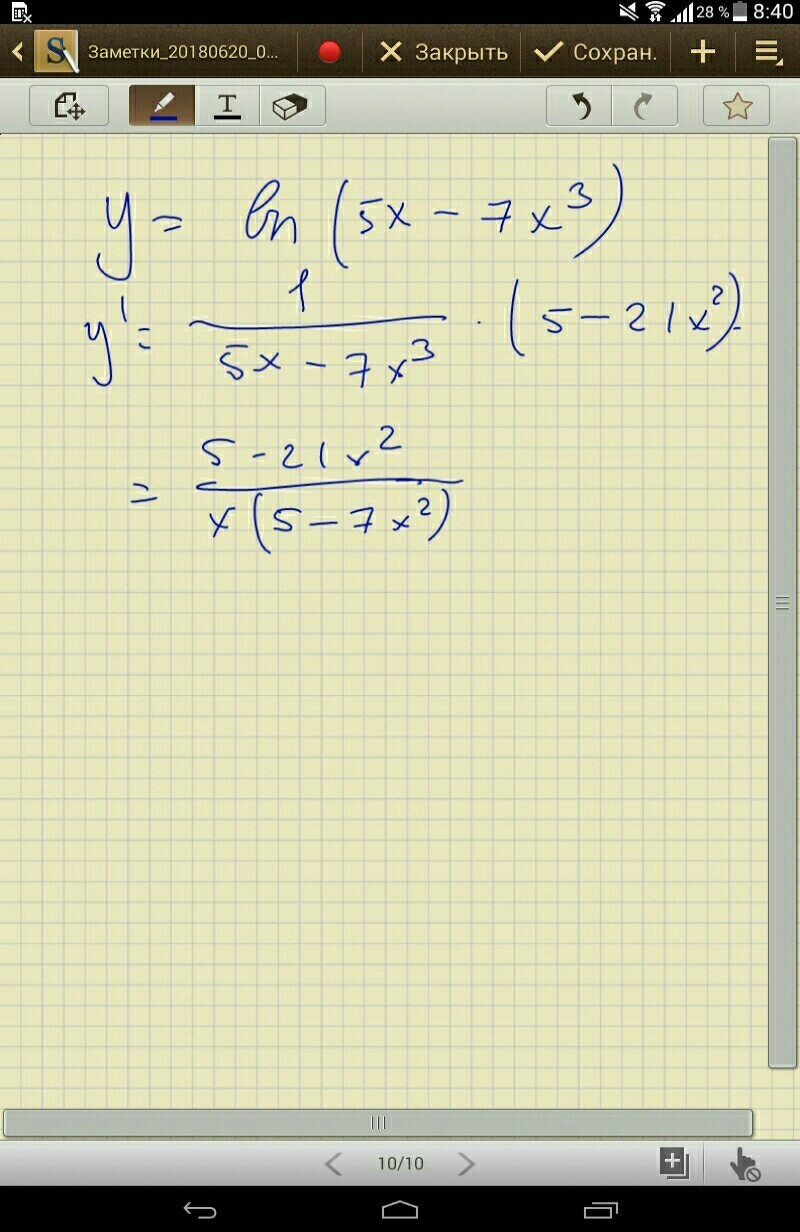 28 % 8:40
Заметки_20180620_0... Закрыть Сохран.
T
y = ln (5x - 7x³)
y' = 1 / (5x - 7x³) · (5 - 21x²) =
= (5 - 21x²) / (x(5 - 7x²))
10/10